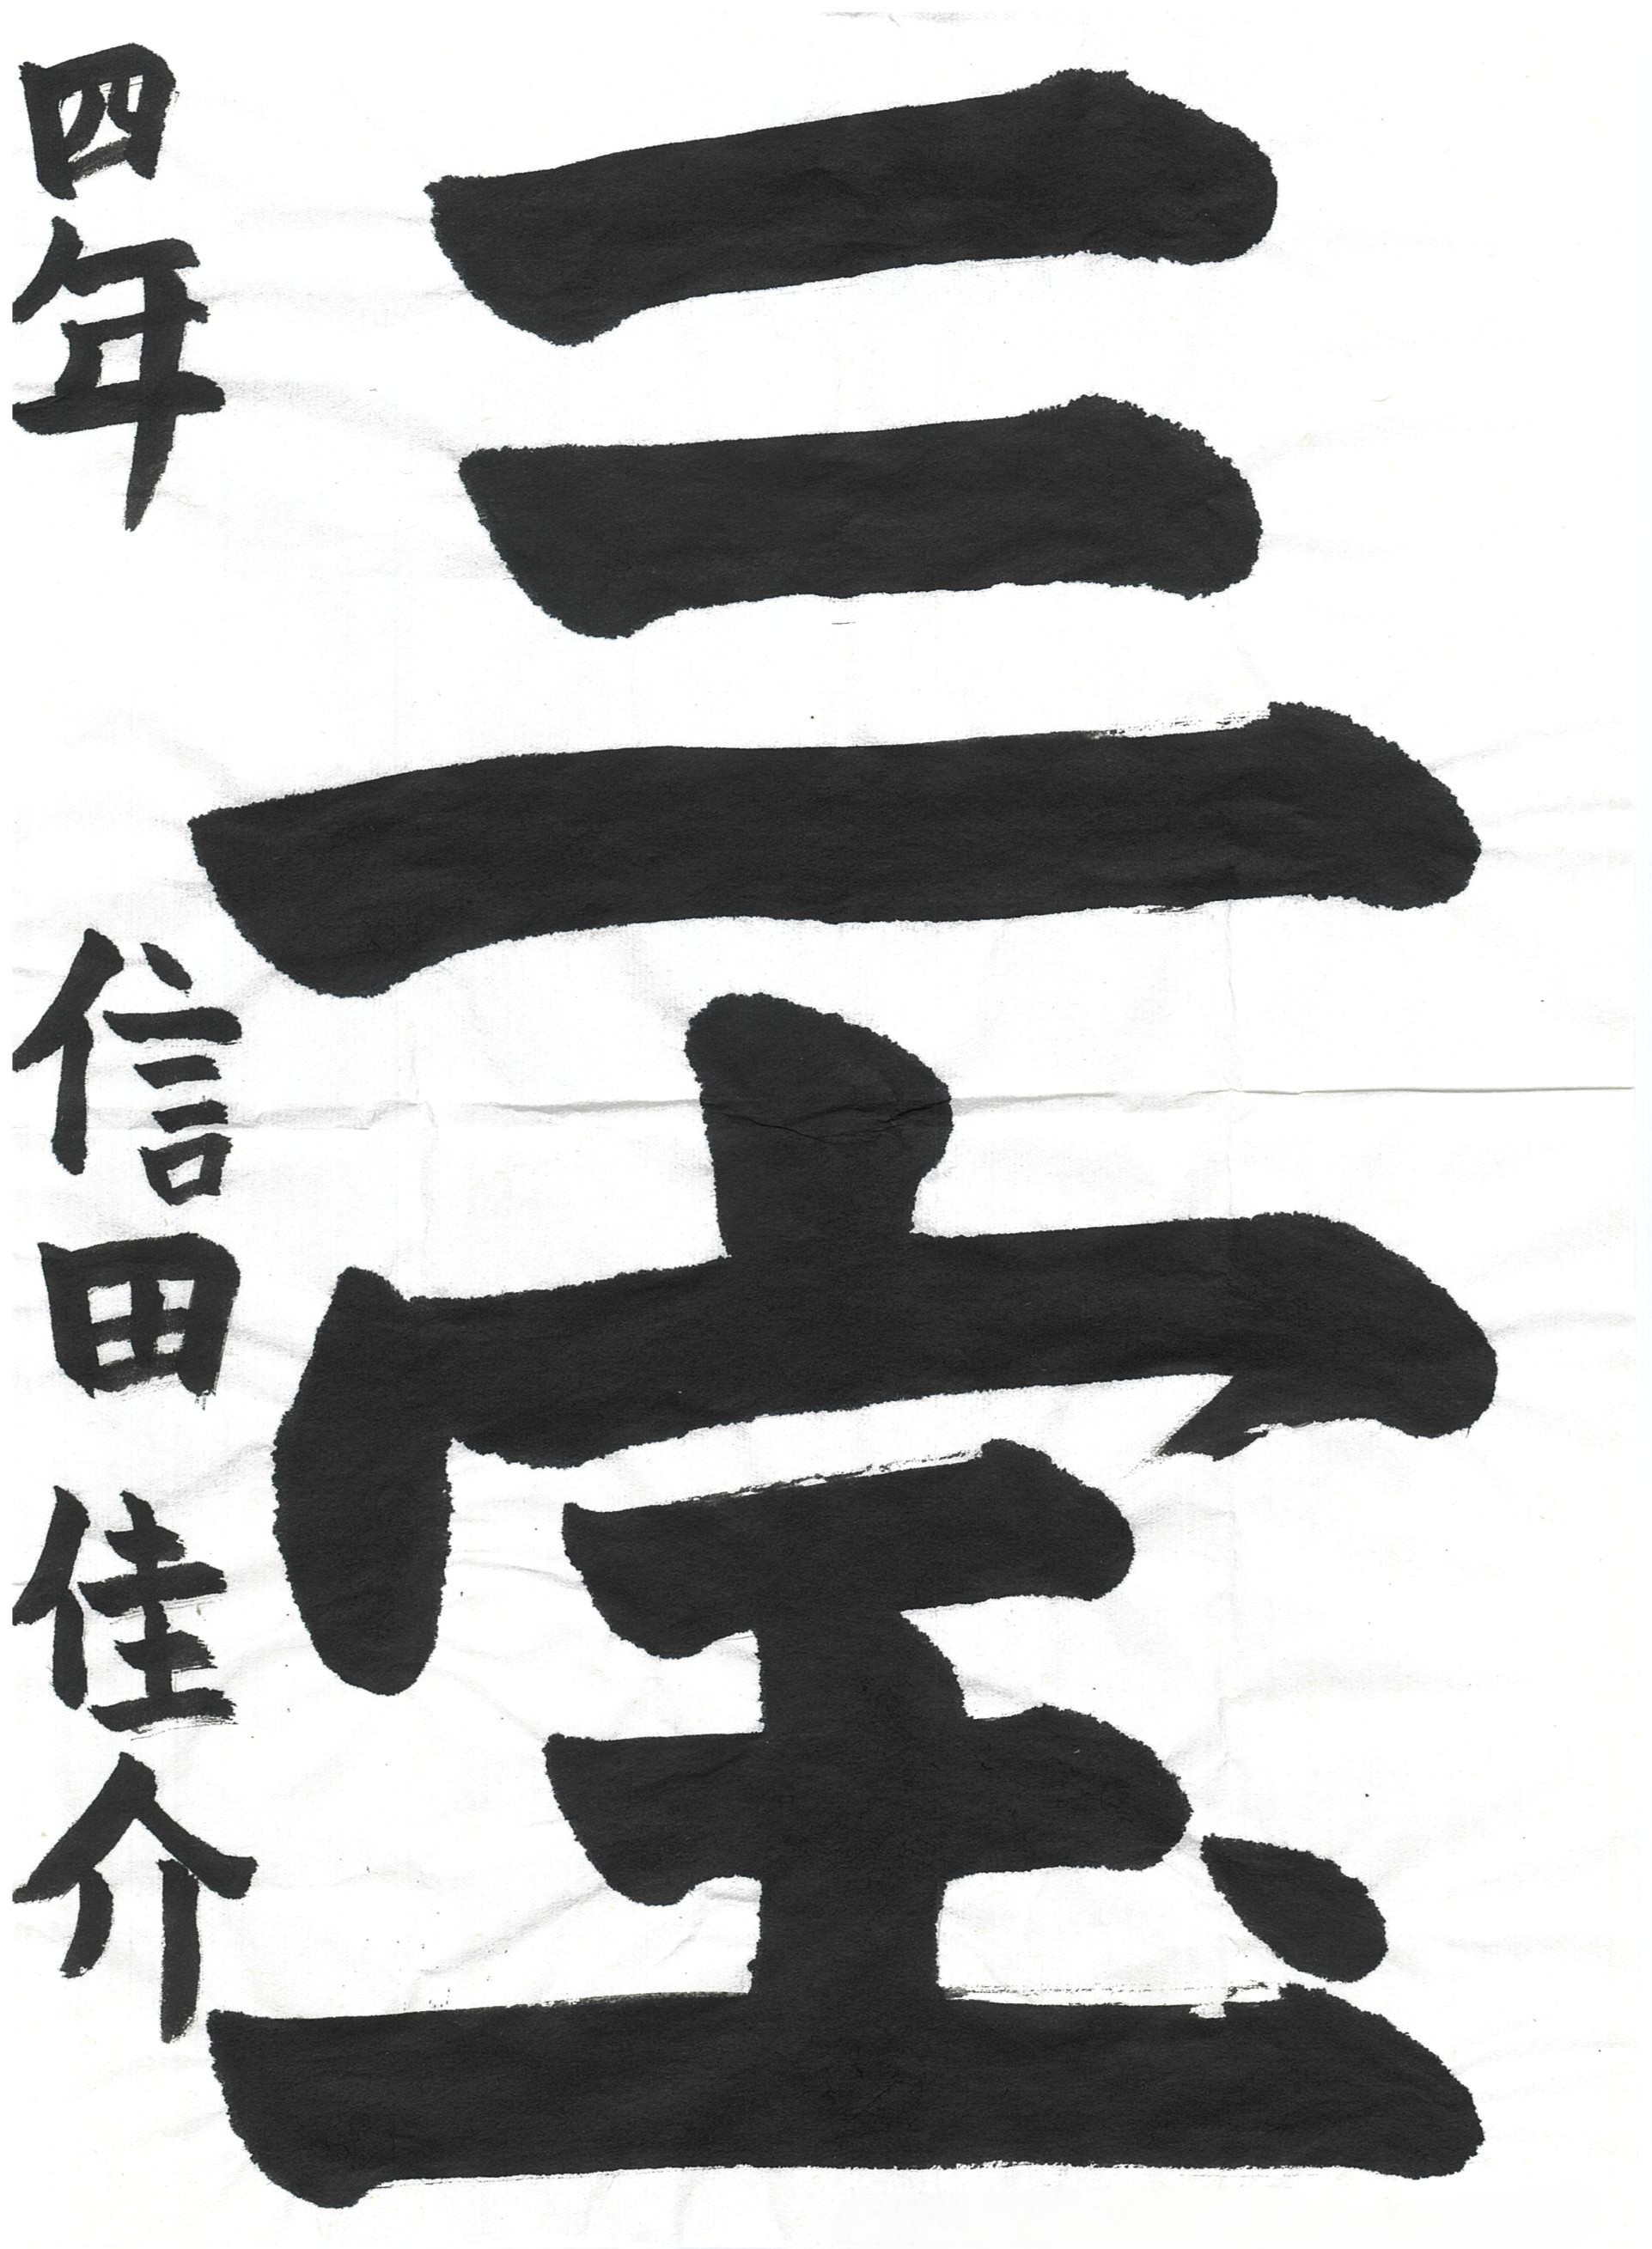 三宝
四年 信田佳介